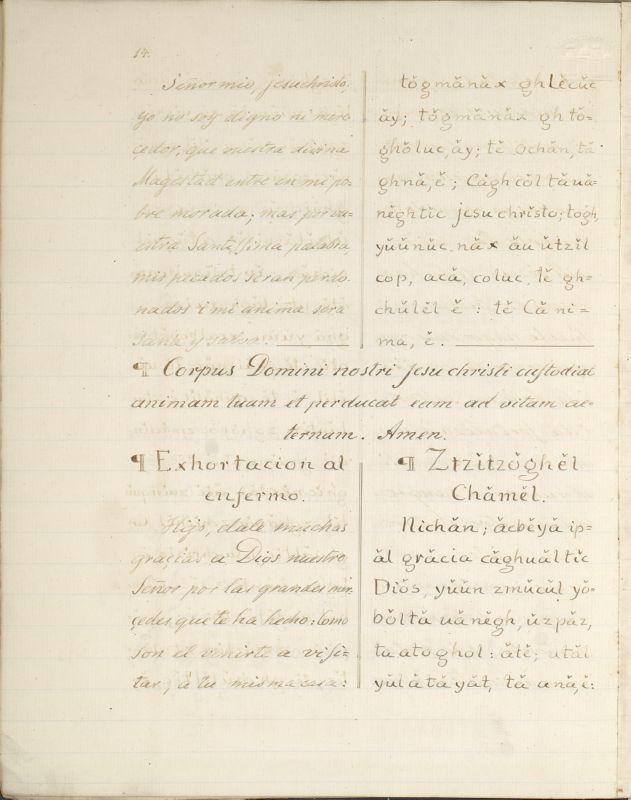 14.
Señor mio, jesuchristo.
yo no soy digno ni mere
çedor, que vuestra divina
Magestad entre en mi po=
bre morada; mas por vu=
estra Santissima palabra,
mis pecados seran perdo
nados i mi anima sera
sana y salva.
tŏgmănăx ghlĕcŭc
ăy; tŏgmănăx gh tŏ=
ghŏluc, ăy; tĕ ochăn, tă
ghnă, ĕ; Căgh cŏltăuă=
nĕghtĭc jesuchrĭsto; tŏgh,
yŭŭnŭc năx ău ŭtzĭl
cop, acă, coluc, tĕ gh=
chŭlĕl ĕ: tĕ Căni=
ma, ĕ.
¶ Corpus Domini nostri Jesu christi custodiat
animam tuam et perducat eam ad vitam ae=
ternam. Amen.
¶ Exhortacion al
enfermo.
Hijo, dale muchas
gracias a Dios nuestro
Señor por las grandes mer
çedes que te ha hecho: como
son el venirte a visi=
tar, á tu misma casa:
¶ Ztzĭtzŏghĕl
Chămĕl.
Nichăn; ăcbĕyă ip=
ăl grăcia căghuăltĭc
Diŏs, yŭŭn zmŭcŭl yŏ=
bŏltă uănĕgh, ŭzpăz,
ta atoghol: ătĕ; utăl
yŭlătăyăt, tă ană, ĕ: